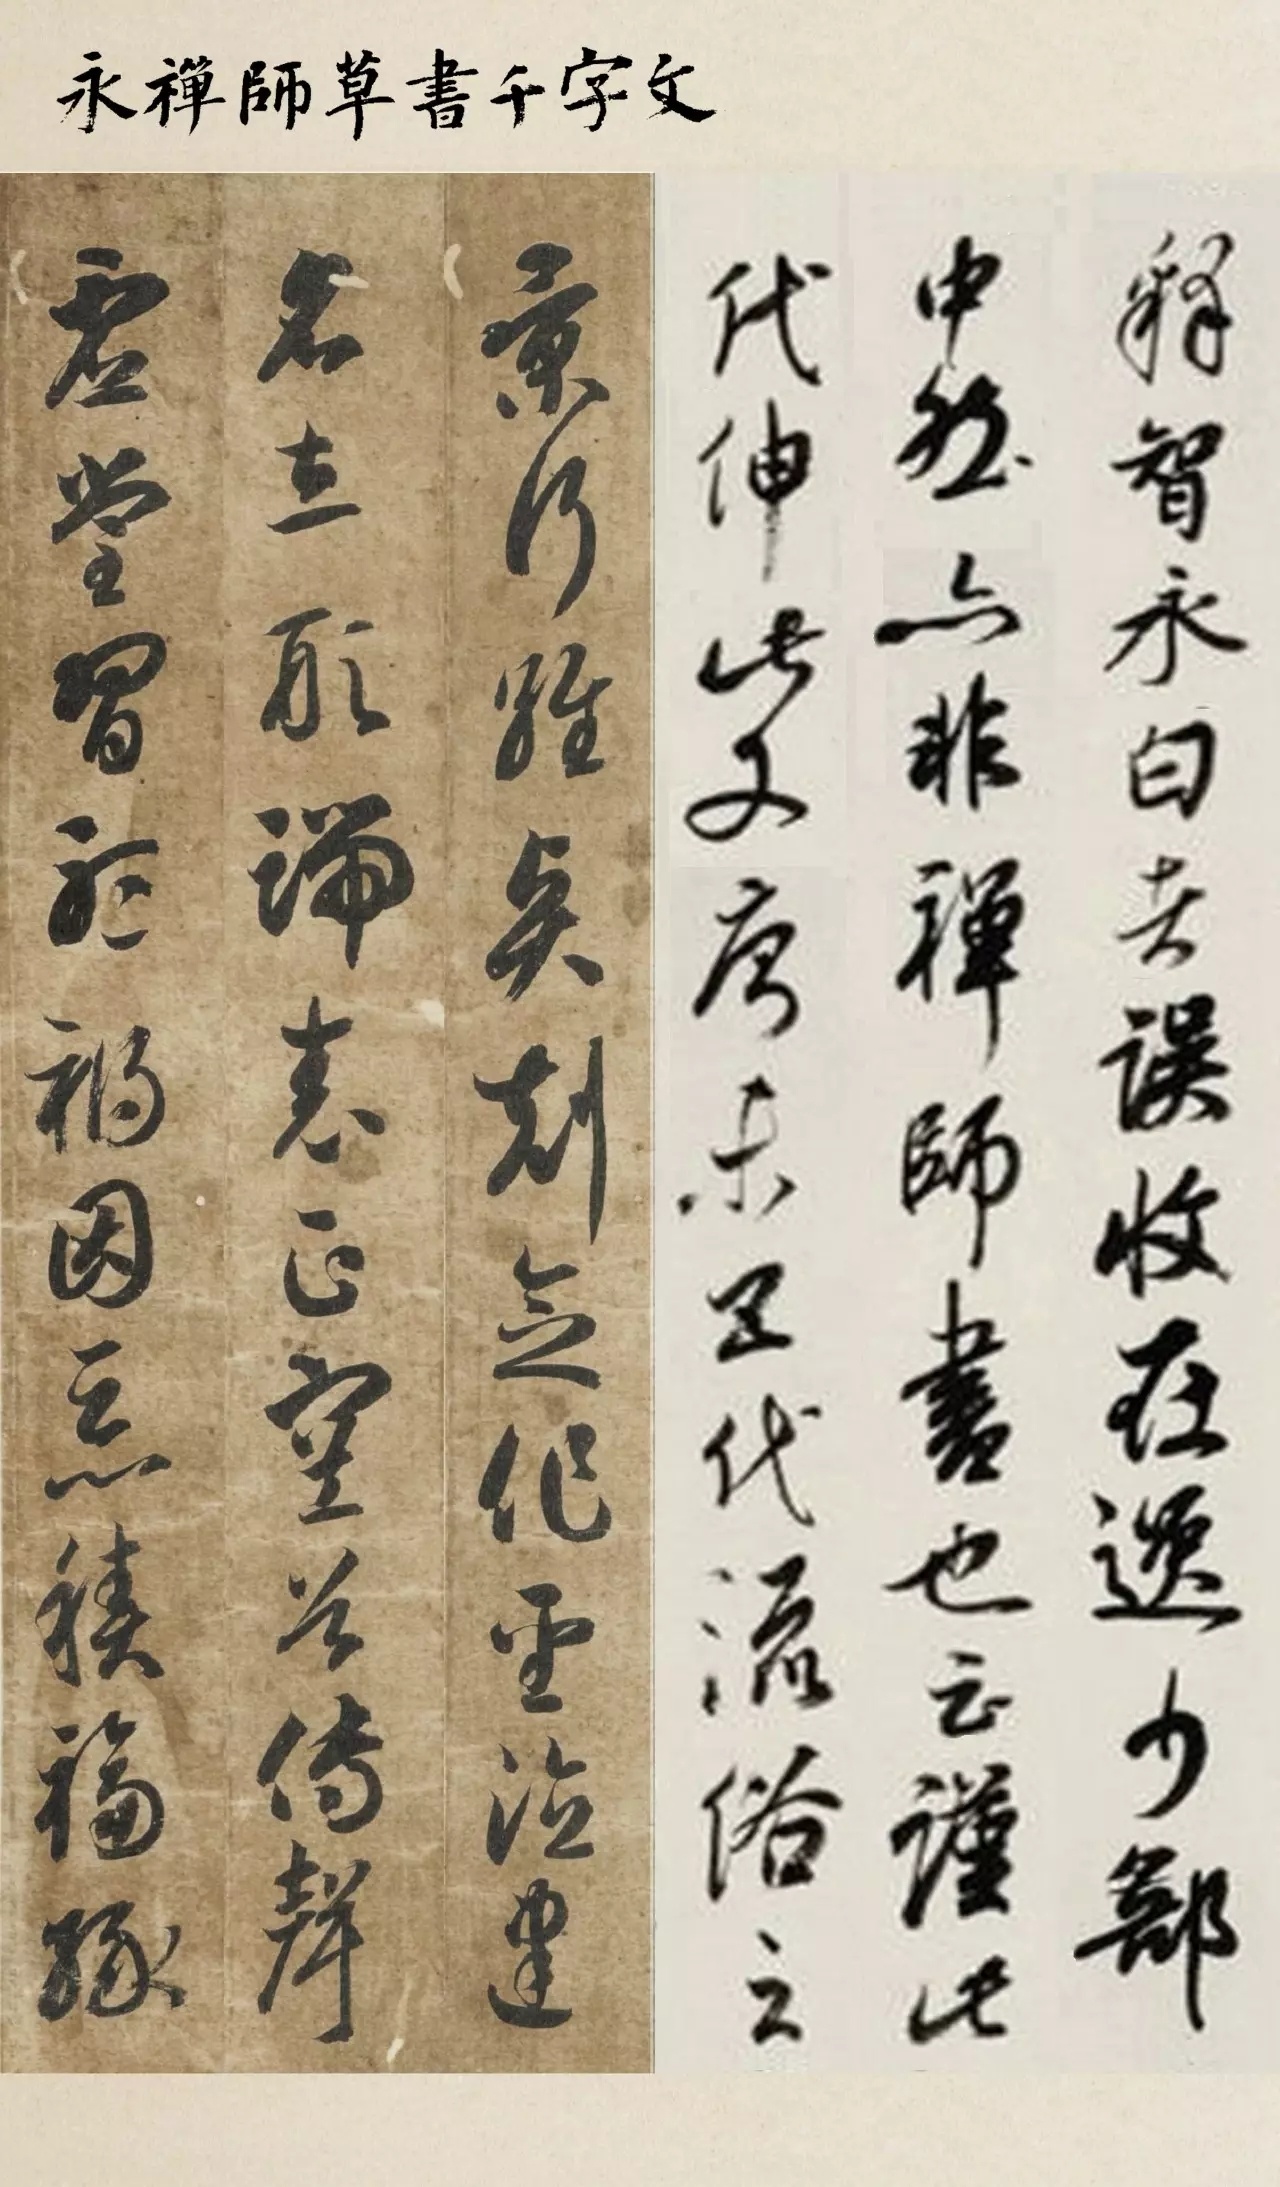 永禪師草書千字文
釋智永白者誤收在逸少部
中然亦非禪師書也云謹此
代伸此乃唐末五代流俗之
景行維賢剋念作聖德建
名立形端表正空谷傳聲
虛堂習聽禍因惡積福緣